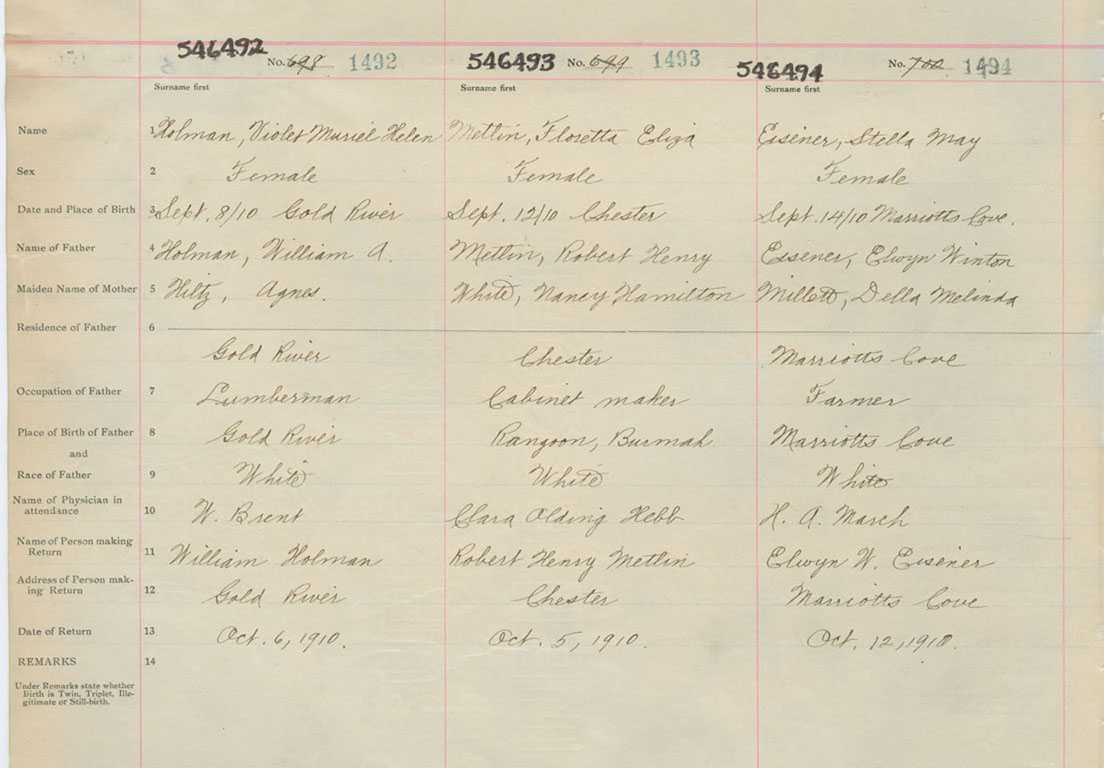 546492 No. 698 1492 546493 No. 699 1493 546494 No. 700 1494
Surname first Surname first Surname first
Name 1 Holman, Violet Muriel Helen Metlin, Floretta Eliza Eisener, Stella May
Sex 2 Female Female Female
Date and Place of Birth 3 Sept. 8/10 Gold River Sept. 12/10 Chester Sept. 14/10 Marriotts Cove.
Name of Father 4 Holman, William A. Metlin, Robert Henry Eisener, Elwyn Winton
Maiden Name of Mother 5 Hiltz, Agnes. White, Nancy Hamilton Millett, Della Melinda
Residence of Father 6
Gold River Chester Marriotts Cove
Occupation of Father 7 Lumberman Cabinet maker Farmer
Place of Birth of Father 8 Gold River Rangoon, Burmah Marriotts Cove
and
Race of Father 9 White White White
Name of Physician in
attendance 10 W. Brent Clara Olding Hebb H. A. March
Name of Person making
Return 11 William Holman Robert Henry Metlin Elwyn W. Eisener
Address of Person mak-
ing Return 12 Gold River Chester Marriotts Cove
Date of Return 13 Oct. 6, 1910. Oct. 5, 1910. Oct. 12, 1910.
REMARKS 14
Under Remarks state whether
Birth is Twin, Triplet, Ille-
gitimate or Still-birth.